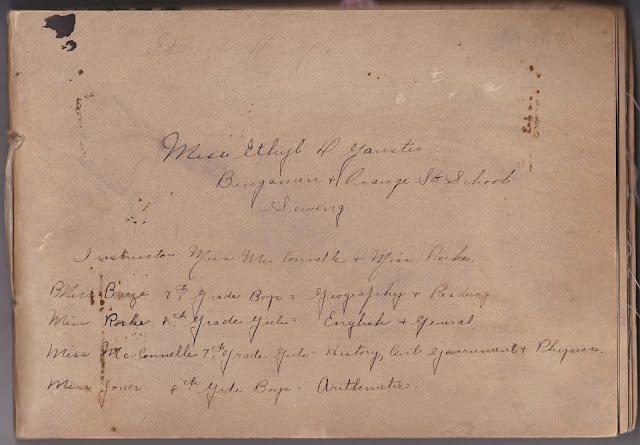 Miss Ethyl D Gauster
Bingaman & Orange Sts School
Sewing.
Instructor Miss Mc Connelle & Miss Rorke.
Miss Boege 7th Grade Boys = Geography & Reading
Miss Rorke 8th Grade Girls = English & General
Miss Mc. Connelle 7th Grade Girls - History, Civil Government & Physics.
Miss Jones 8th Grde Boys - Arithmetic.